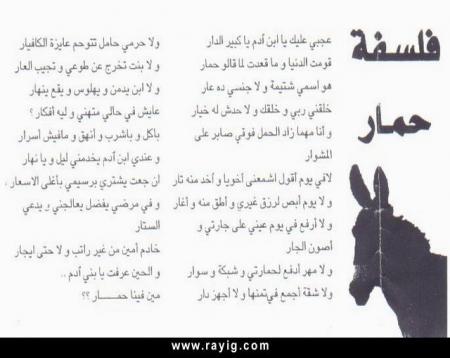 فلسفة
حمار
عجبي عليك يا ابن أدم يا كبير الدار
قومت الدنيا و ما قعدت لما قالو حمار
هو اسمي شتيمة و لا جنسي ده عار
خلقني ربي و خلقك و لا حدش له خيار
و أنا مهما زاد الحمل فوقي صابر على
المشوار
لافي يوم أقول اشمعنى أخويا و أخد منه تار
و لا يوم أبص لرزق غيري و أطق منه و أغار
و لا أرفع في يوم عيني على جارتي و
أصون الجار
و لا مهر أدفع لحمارتي و شبكة و سوار
ولا شقة أجمع في تمنها و لا أجهز دار
ولا حرمي حامل تتوحم عايزة الكافيار
و لا بنت تخرج عن طوعي و تجيب العار
و لا ابن يدمن و يهلوس و يقع ينهار
عايش في حالي متهني و ليه أفكار؟
باكل و باشرب و أنهق و مافيش أسرار
و عندي ابن أدم يخدمني ليل و يا نهار
ان جعت يشتري برسيمي بأغلى الاسعار
و في مرضي يفضل يعالجني و يدعي
الستار
خادم أمين من غير راتب و لا حتى ايجار
و الحين عرفت يا بني أدم ..
مين فينا حمـــــار ؟؟
www.rayig.com